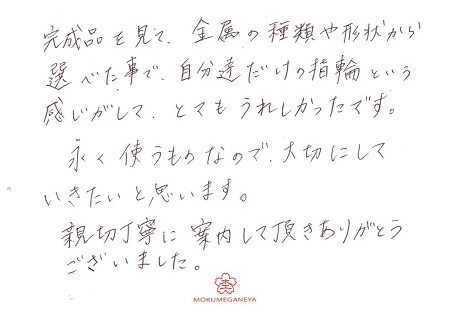 完成品を見て、金属の種類や形状から
選べた事で、自分達だけの指輪という
感じがして、とてもうれしかったです。
永く使うものなので、大切にして
いきたいと思います。
親切丁寧に案内して頂きありがとう
ございました。
MOKUMEGANEYA